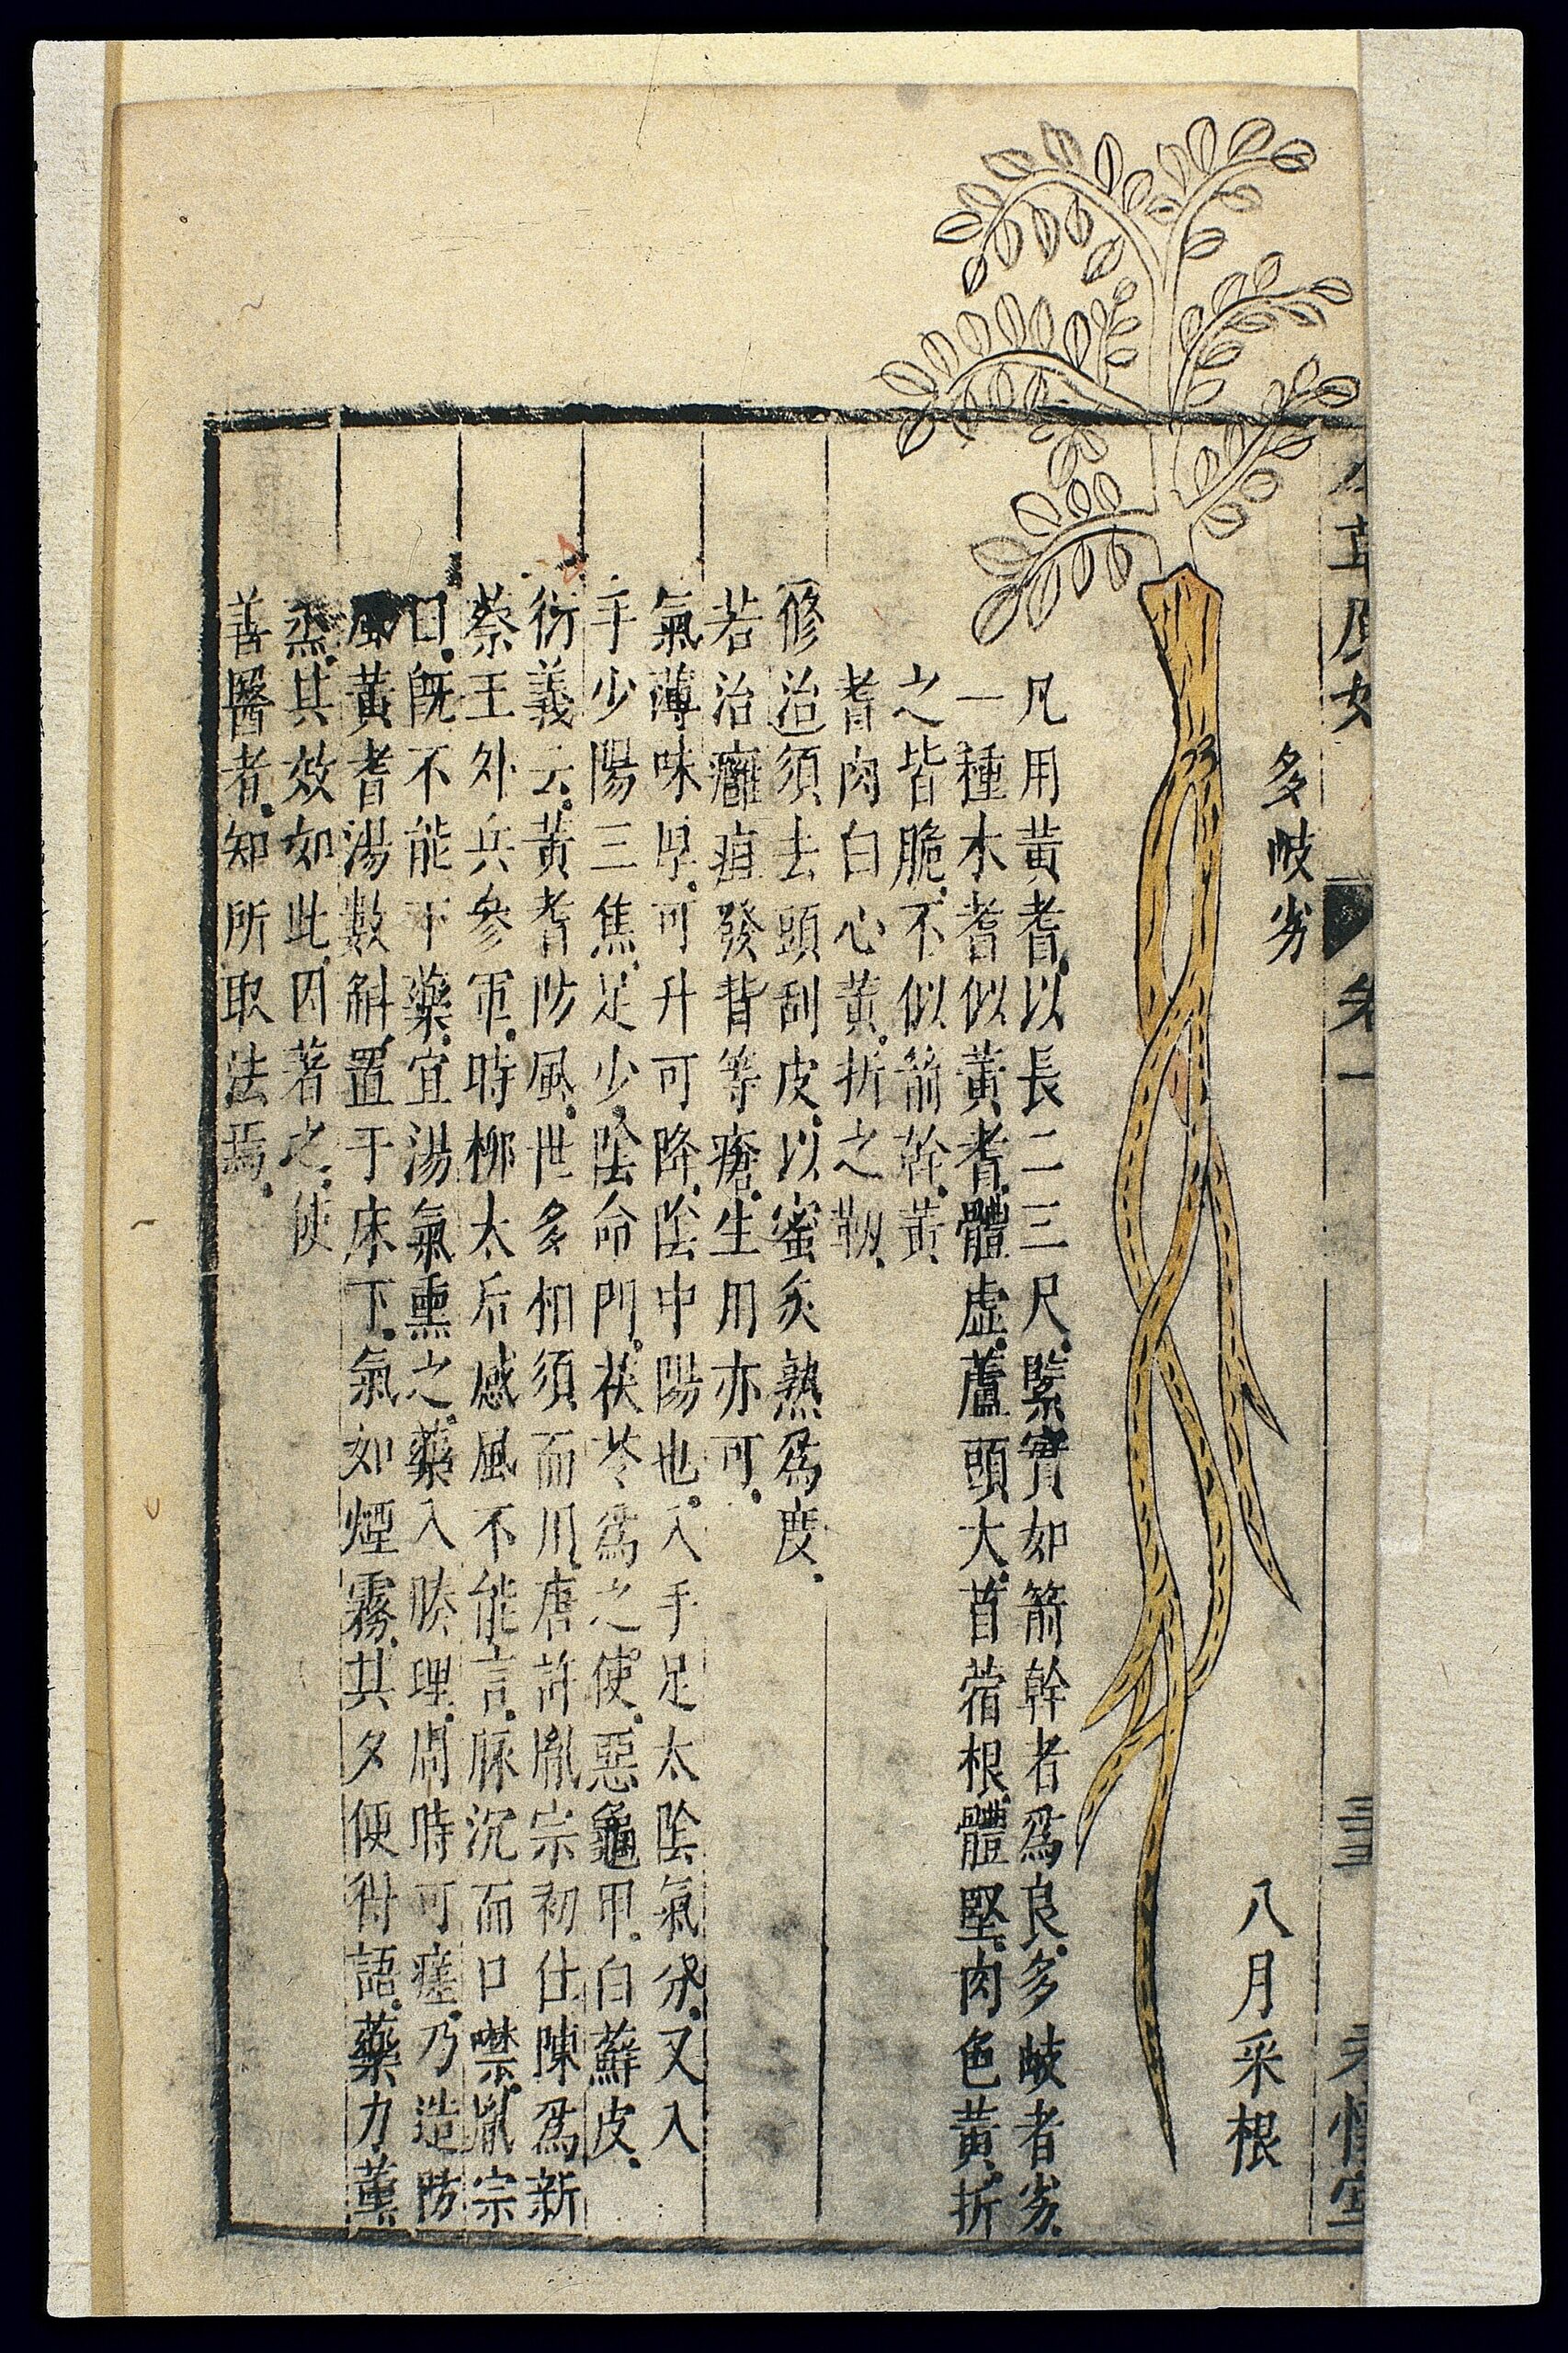 卷一
三三
多岐劣
八月采根
凡用黃耆以長二三尺緊實如箭幹者爲良多岐者劣
一種木耆似黃耆體虛蘆頭大苜蓿根體堅肉色黃折
之皆脆不似箭幹黃
耆肉白心黃折之靱
修治須去頭刮皮以蜜炙熟爲度
若治癰疽發背等瘡生用亦可
氣薄味厚可升可降陰中陽也入手足太陰氣分又入
手少陽三焦足少陰命門茯苓爲之使惡龜甲白蘚皮
衍義云黃耆防風世多相須而用唐許胤宗初仕陳爲新
蔡王外兵參軍時柳太后感風不能言脉沉而口噤胤宗
曰既不能下藥宜湯氣熏之藥入腠理周時可瘥乃造防
風黃耆湯數斛置于床下氣如煙霧其夕便得語藥力薰
烝其效如此因著之使
善醫者知所取法焉